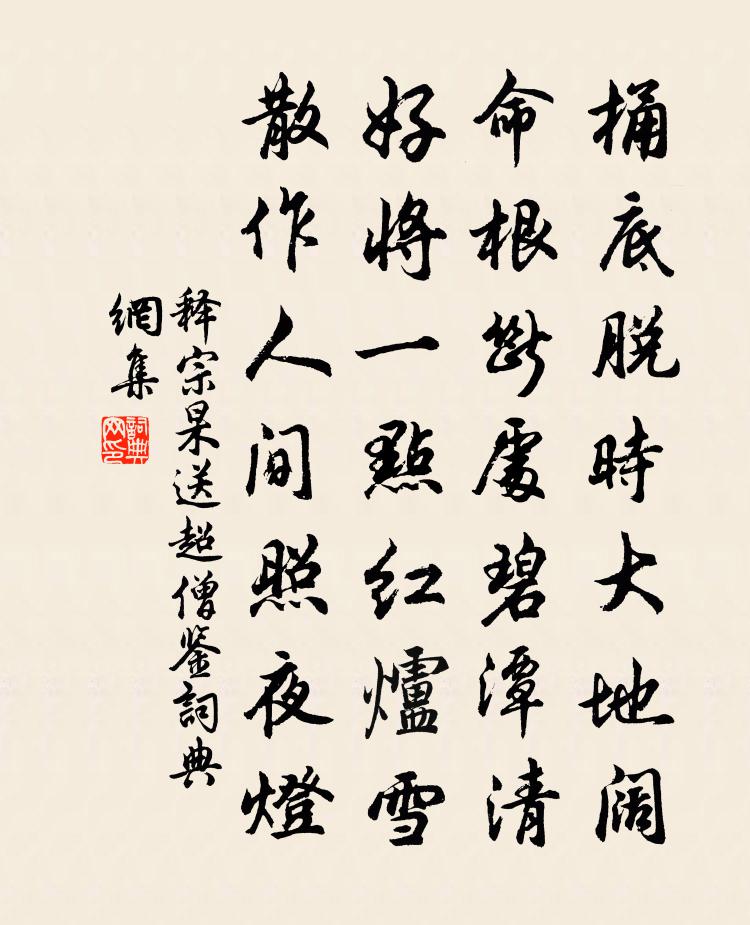 桶底脫時大地阔
命根斷處碧潭清
好將一點紅爐雪
散作人間照夜燈
释宗杲送超僧鉴詞典
網集
詞典网印